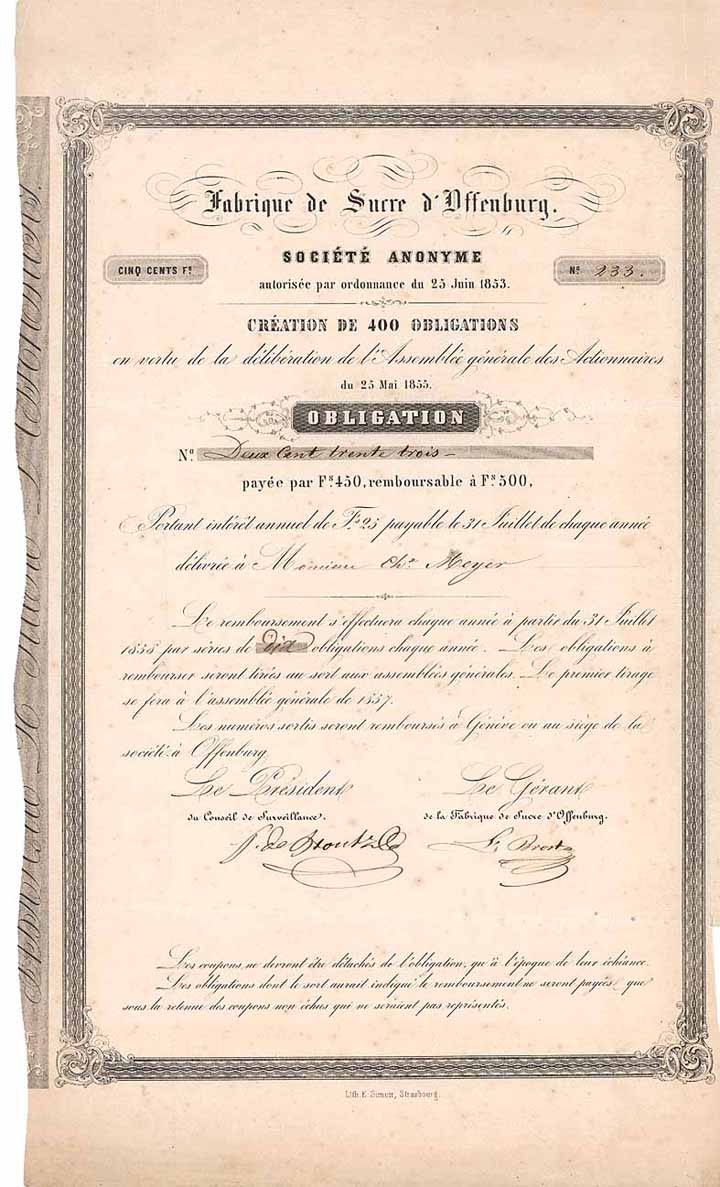 Fabrique de Sucre d'Offenburg.
SOCIÉTÉ ANONYME
CINQ CENTS Fs.
No. 233.
autorisée par ordonnance du 25 Juin 1853.
CRÉATION DE 400 OBLIGATIONS
en vertu de la délibération de l'Assemblée générale des Actionnaires
du 25 Mai 1855.
OBLIGATION
No. Deux Cent trente trois
payée par Fs. 450, remboursable à Fs. 500,
Portant intérêt annuel de Fs. 25 payable le 31 Juillet de chaque année
délivrée à Monsieur Chs. Meyer
Le remboursement s'effectuera chaque année à partir du 31 Juillet
1858 par séries de Dix obligations chaque année. Les obligations à
rembourser seront tirées au sort aux assemblées générales. Le premier tirage
se fera à l'assemblée générale de 1857.
Les numéros sortis seront remboursés à Genève ou au siège de la
société à Offenburg
Le Président
Le Gérant
du Conseil de Surveillance.
de la Fabrique de Sucre d'Offenburg.
Les coupons ne devront être détachés de l'obligation, qu'à l'époque de leur échéance.
Les obligations dont le sort aurait indiqué le remboursement ne seront payées que
sous la retenue des coupons non échus qui ne seraient pas représentés.
Lith. E. Simon, Strasbourg.